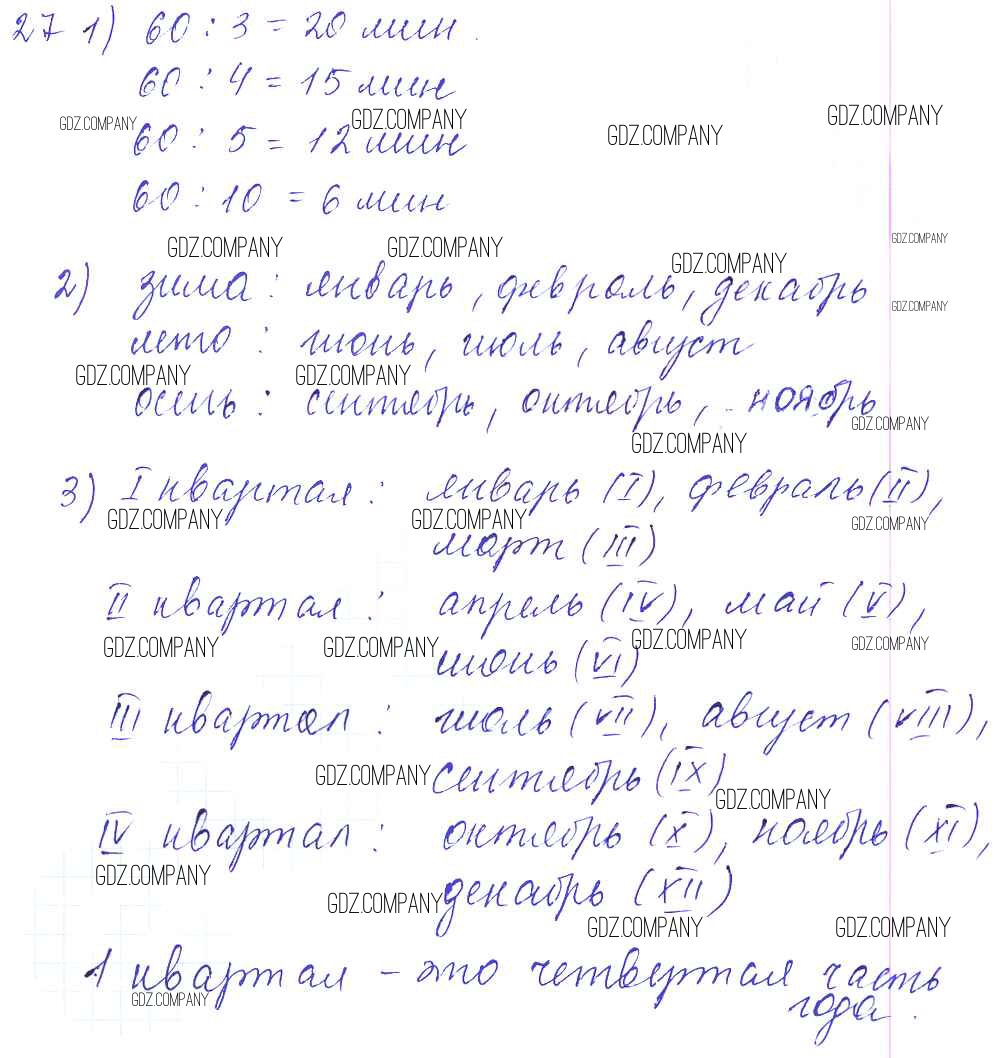 27 1) 60 : 3 = 20 мин.
60 : 4 = 15 мин
GDZ.COMPANY GDZ.COMPANY GDZ.COMPANY GDZ.COMPANY
60 : 5 = 12 мин
60 : 10 = 6 мин
GDZ.COMPANY GDZ.COMPANY GDZ.COMPANY GDZ.COMPANY
2) зима : январь, февраль, декабрь
GDZ.COMPANY
лето : июнь, июль, август
GDZ.COMPANY GDZ.COMPANY
осень : сентябрь, октябрь, ноябрь
GDZ.COMPANY GDZ.COMPANY
3) I квартал : январь (I), февраль (II),
GDZ.COMPANY GDZ.COMPANY GDZ.COMPANY
март (III)
II квартал : апрель (IV), май (V),
GDZ.COMPANY GDZ.COMPANY GDZ.COMPANY GDZ.COMPANY
июнь (VI)
III квартал : июль (VII), август (VIII),
GDZ.COMPANY сентябрь (IX)
GDZ.COMPANY
IV квартал : октябрь (X), ноябрь (XI),
GDZ.COMPANY
GDZ.COMPANY декабрь (XII)
GDZ.COMPANY GDZ.COMPANY
1 квартал – это четвертая часть
GDZ.COMPANY
года.